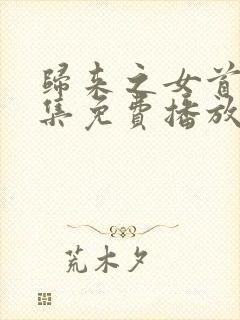 歸来之女首
集免費播放
荒木夕